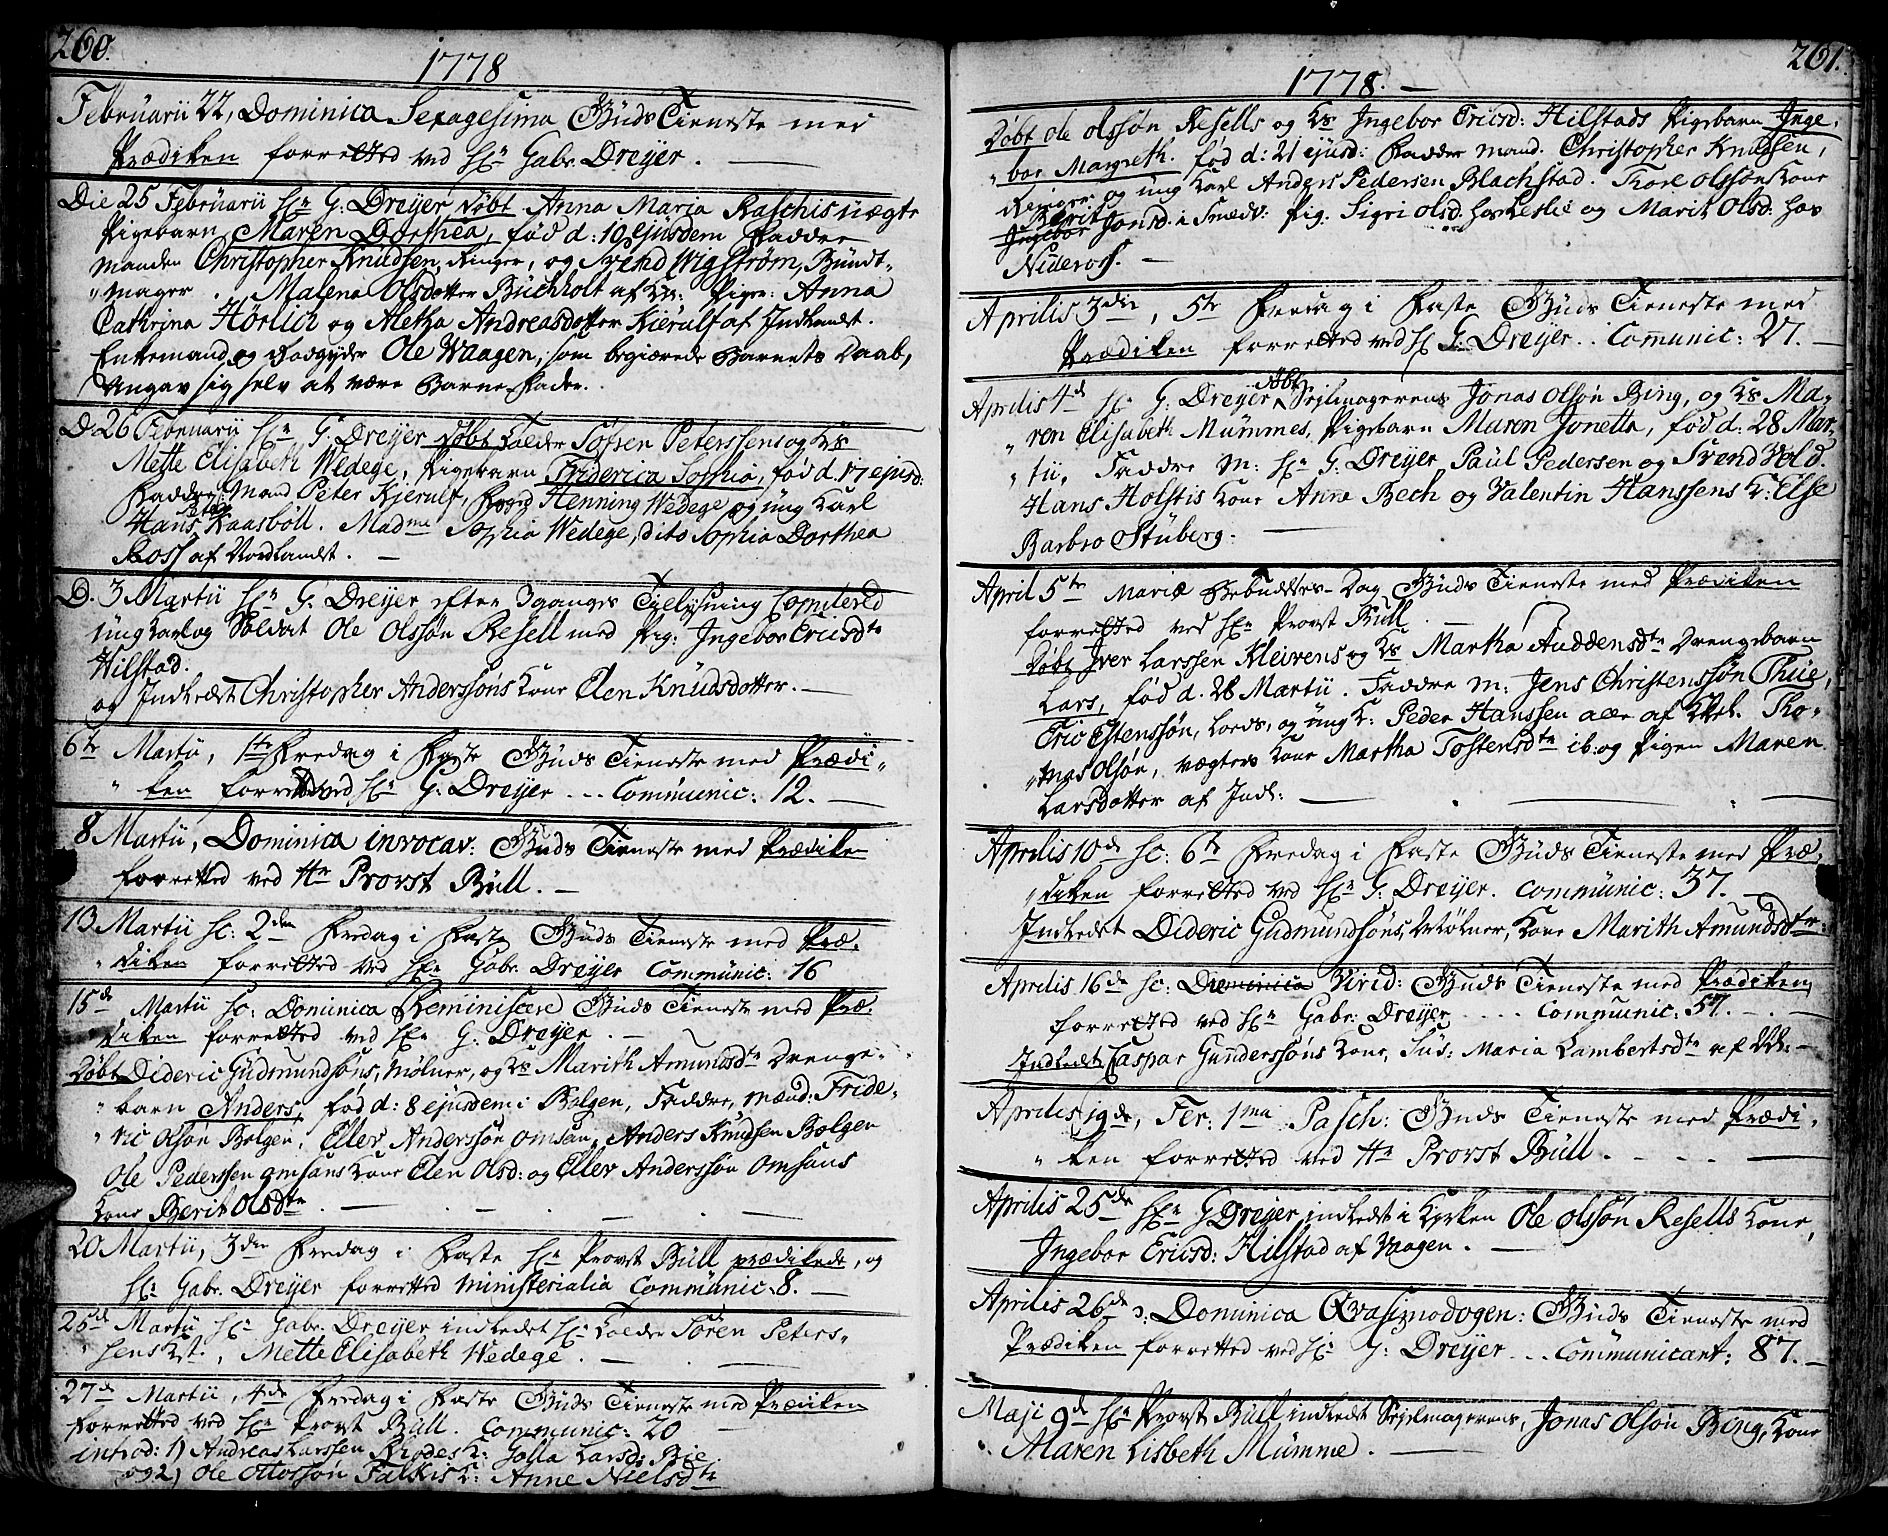 260.
1778
Februarii 22, Dominica Sexagesima Guds Tieneste med
Prædiken forretted ved Hr. Gabr. Dreyer.
Die 25 Februarii Hr. G. Dreyer døbt Anna Maria Raschis uægte
Pigebarn Maren Dorthea, fød d: 10 ejusdem Fadder
Manden Christopher Knudsen, Ringer, og Svend Wigstrøm, Bundt-
"mager. Malena Olsdotter Buchholt af Kr: Piger: Anna
Cathrina Hörlich og Aletha Andreasdotter Kierulf af Indlandet.
Enkemand og Rodgyder Ole Waagen, som begiærede Barnets Daab,
Angav sig selv at være Barne-Fader.
D. 26 Februarii Hr. G. Dreyer døbt Folder Sören Peterssens og Ks
Mette Elisabeth Wedege, Pigebarn Friderica Sophia, fød d. 17 ejusd:
Faddere Mand Peter Kjerulf, Henning Wedege og ung Karl
Hans Kaasböll. Madme Sophia Wedege, dito Sophia Dorthea
Ross af Nordlandet.
D. 3 Martii Hr. G. Dreyer efter 3 ganges Tillysning Copulered
ung Karl og Soldat Ole Olssøn Resell med Pig: Ingebor Ericsdtr
Hilstad.
og Indledet Christopher Anderssøns Kone Elen Knudsdotter.
6te Martii, 1te Fredag i Faste Guds Tieneste med Prædi-
"ken forretted ved Hr. G. Dreyer ... Communic: 12.
8 Martii, Dominica invocav: Guds Tieneste med Prædiken
forretted ved Hr Provst Büll.
13 Martii sc: 2den Fredag i Faste Guds Tieneste med Præ-
"diken forretted ved Hr. Gabr. Dreyer Communic: 16
15de Martii sc: Dominica Reminiscere Guds Tieneste med Præ-
diken forretted ved Hr. G. Dreyer.
Døbt Dideric Gudmundsøns, Mølner, og Ks Marith Amundsdtr Drenge-
"barn Anders, fød d: 8 ejusdem i Bolgen, Faddre, Mænd: Fride-
"ric Olsøn Bolgen, Eller Anderssøn Omsan, Anders Knudsen Bolgen
Ole Pederssen Omsans Kone Elen Olsd: og Eller Anderssøn Omsans
Kone Berit Olsdtr.
20 Martii, 3die Fredag i Faste Hr. Provst Büll prædikede, og
Hr. Gabr. Dreyer forretted Ministerialia Communic. 8.
25de Martii Hr. Gabr. Dreyer indledet Hr. Folder Sören Peters-
"sens Kst., Mette Elisabeth Wedege.
27de Martii, 4de Fredag i Faste Guds Tieneste med Prædiken
forretted ved Hr. Provst Büll. Communic: 20
introd: 1) Andreas Larssen Rhodes K: Golla Larsd. Bie
og 2) Ole Ottossøn Falkis K: Anne Nielsdtr
261.
1778.
Døbt Ole Olssøn Resells og Ks Ingebor Ericsd: Hilstads Pigebarn Inge-
"bor Margreth. fød d: 21 ejusd: Fadder Mand. Christopher Knudsen,
Ringer, og ung Karl Anders Pedersen Blachstad. Thore Olssøns Kone
Berit
Ingebor Jonsd: i Smedv: Pig. Sigri Olsd: hos Leslie og Marit Olsd: hos
Nideross.
Aprilis 3die, 5te Fredag i Faste Guds Tieneste med
Prædiken forretted ved Hr. G. Dreyer .. Communic: 27.
Aprilis 4de Hr. G. Dreyer døbt Sejlmagerens Jonas Olsøn Bing, og Ks Ma-
"ren Elisabeth Mümmes, Pigebarn Maren Jonetta, fød d: 28 Mar-
"tii, Faddre M: Hr. G. Dreyer Paul Pedersen og Svend Vold.
Hans Holstis Kone Anne Bech og Valentin Hanssens K: Else
Barbro Stüberg.
April 5te Mariæ Bebudelses-Dag Guds Tieneste med Prædiken
forretted ved Hr. Provst Büll.
Døbt Iver Larssen Kleivens og Ks Martha Auddensdtr Drengebarn
Lars, fød d. 28 Martii. Faddre M: Jens Christenssøn Thue,
Eric Estenssøn, Lords, og ung K: Peder Hanssen alle af Kle. Tho-
"mas Olsøn, vægters Kone Martha Tostensdtr ib: og Pigen Maren
Larsdotter af Indl:
Aprilis 10de sc: 6te Fredag i Faste Guds Tieneste med Præ-
"diken forretted ved Hr. G. Dreyer. Communic: 37.
Indledet Dideric Gudmundsøns, Mølner, Kone Marith Amundsdtr.
Aprilis 16de sc: Dominica Virid: Guds Tieneste med Prædiken
forretted ved Hr. Gabr: Dreyer .... Communic: 57.
Indledt Caspar Gunderssøns Kone, Sus: Maria Lambertsdtr af
Aprilis 19de, Fer: 1ma Pasch: Guds Tieneste med Prædi-
"ken forretted ved Hr Provst Büll.
Aprilis 25de Hr. G Dreyer indledt i Kirken Ole Olssøn Resells Kone,
Ingebor Ericsd: Hilstad af Vaagen.
Aprilis 26de: Dominica Qvasimodogen: Guds Tieneste med
Prædiken forretted ved Hr. G. Dreyer ... Communicant: 87.
Maji 9de Hr. Provst Büll indledt Sejelmagerens, Jonas Olsøn Bing, Kone
Maren Lisbeth Mumme.